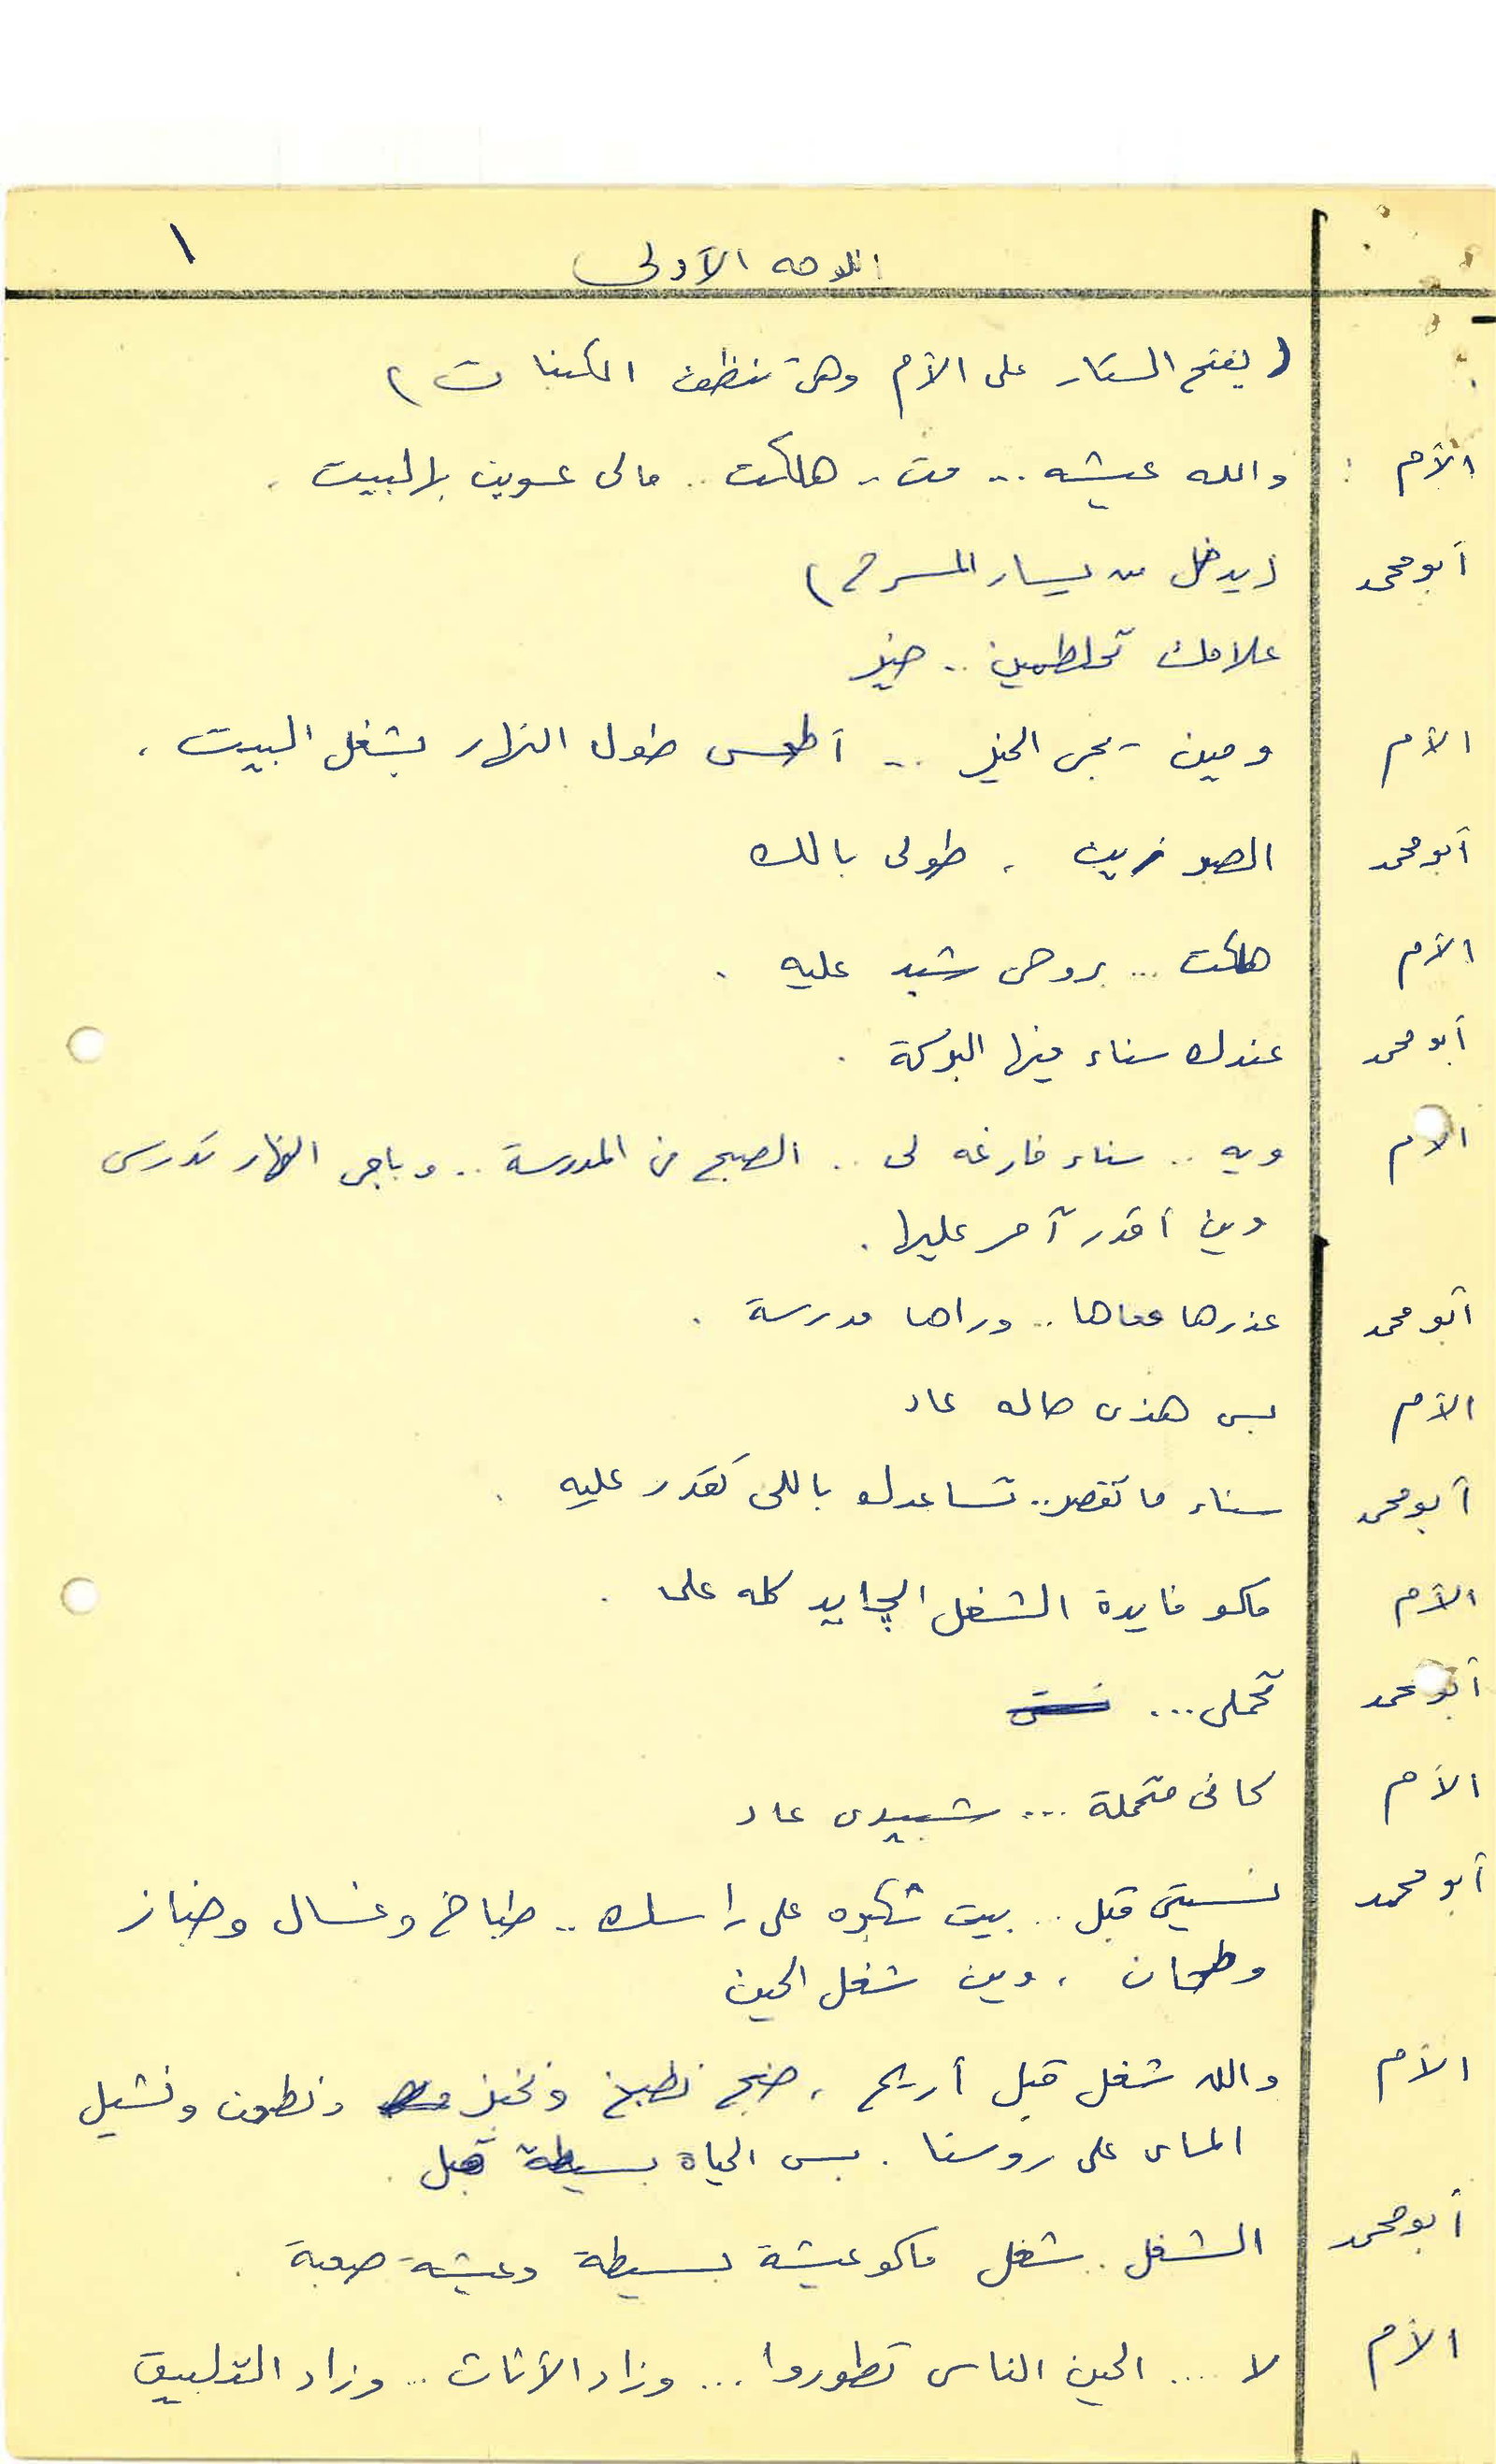 ١
اللوحه الأولى
( يفتح الستار على الأم وهى تنظف الكنبات )
الأم : والله عيشه .. مت .. هلكت .. مالى عوين بالبيت .
أبو محمد (يدخل من يسار المسرح)
علامك تحلطمين .. خير
الأم ومين يجى الخير .. أطحس طول النهار بشغل البيت .
أبو محمد الصبر زين . طولى بالك
الأم هلكت ... بروحى شبد عليه .
أبو محمد عندك سناء فيها البركة .
الأم ويه .. سناء فارغه لى .. الصبح فى المدرسة .. وباجى النهار تدرس
وين أقدر آمر عليها .
أبو محمد عذرها معاها .. وراها مدرسة .
الأم بس هذى حاله عاد
أبو محمد سناء ما تقصر .. تساعدك باللى تقدر عليه .
الأم ماكو فايدة الشغل الچايد كله على .
أبو محمد تحملى ...
الأم كانى متحملة ... شبيدى عاد
أبو محمد نسيتى قبل .. بيت شكبره على راسك .. طباخ وغسال وخباز
وطحان ، وين شغل الحين
الأم والله شغل قبل أريح ، صح نطبخ ونخبز ونطحن ونشيل
الماى على روسنا . بس الحياة بسيطة قبل .
أبو محمد الشغل . شغل ماكو عيشة بسيطة وعيشة صعبة .
الأم لا .... الحين الناس تطوروا ... وزاد الأثاث .. وزاد التدليق